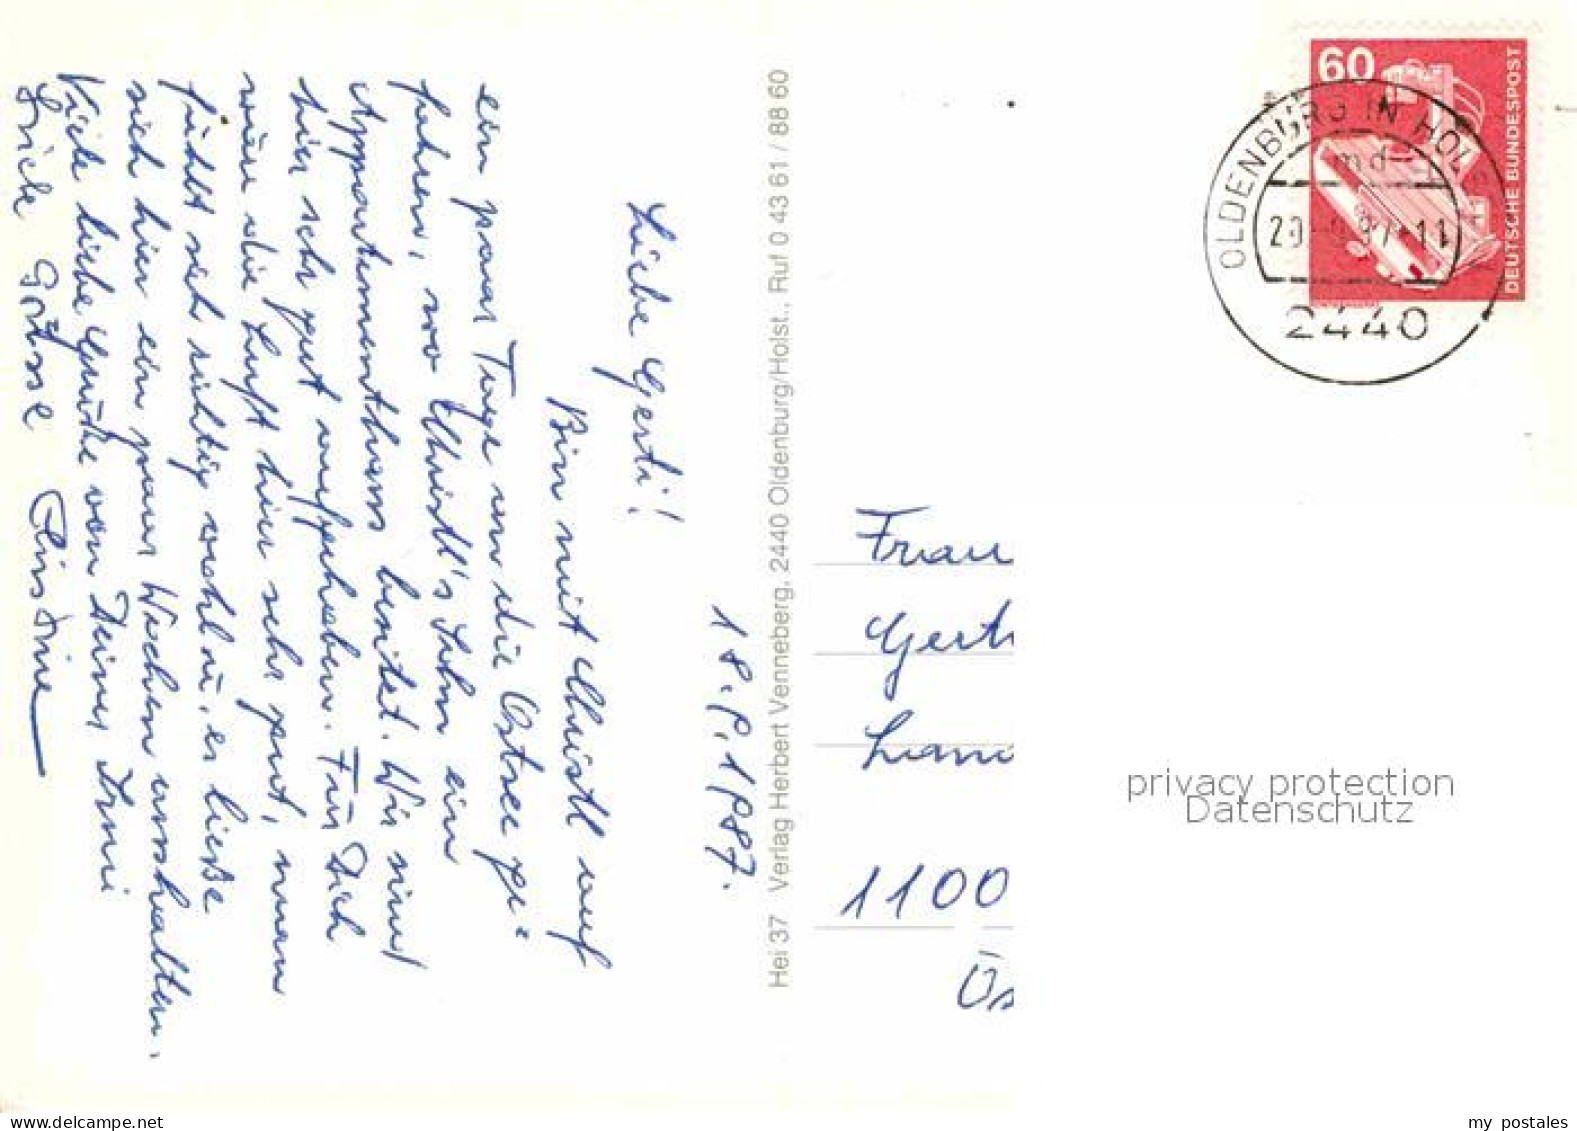 18.9.1987.
Liebe Gerti!
Bin mit Christl auf
ein paar Tage an die Ostsee ge=
fahren, wo Christl's Sohn ein
Appartementhaus besitzt. Wir sind
hier sehr gut aufgehoben. Für Dich
wäre die Luft hier sehr gut, man
fühlt sich richtig wohl u. es ließe
sich hier ein paar Wochen aushalten.
Viele liebe Grüße von Deiner
Viele Grüsse Christine
Hei 37 Verlag Herbert Venneberg, 2440 Oldenburg/Holst., Ruf 0 43 61 / 88 60
60
DEUTSCHE BUNDESPOST
OLDENBURG IN HOLST
md
-11
2440
Frau
Gert
1100
Ös
privacy protection
Datenschutz
www.delcampe.net
my_postales